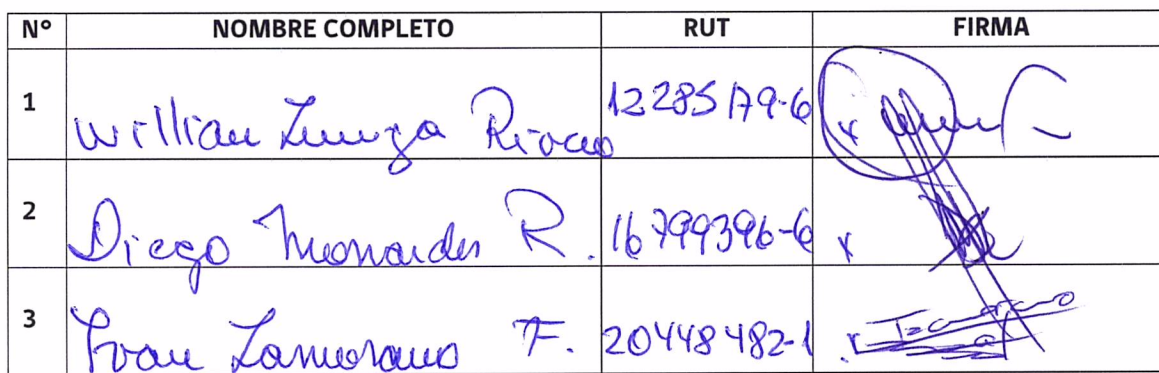 N° NOMBRE COMPLETO RUT FIRMA
1 Willian Zuniga Riocao 12285179-6
2 Diego Monarder R. 16799396-6 x
3 Ivan Zamorano F. 20448482-1